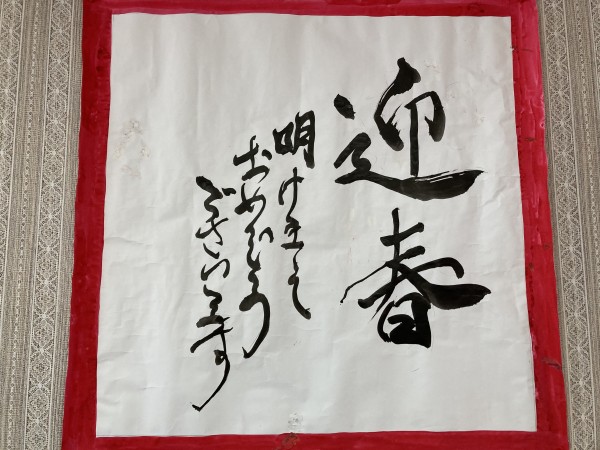 迎春
明けまして
おめでとう
ございます